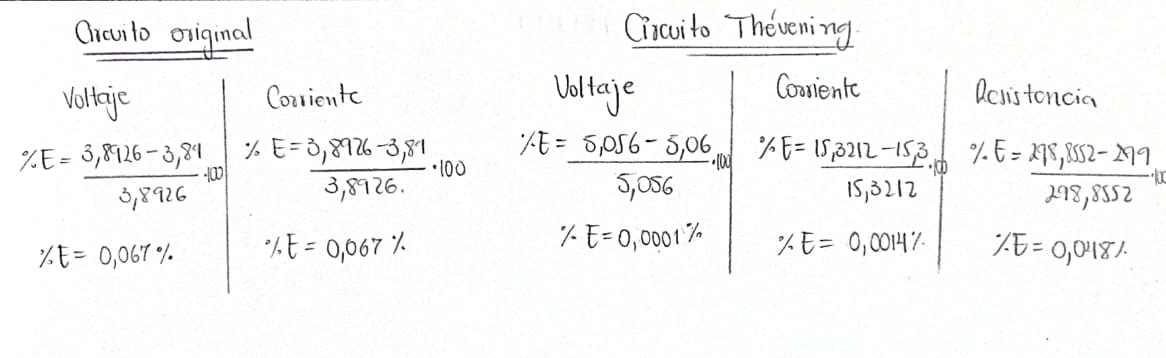 Circuito original
Circuito Thévening.
Voltaje
%E = 3,8926-3,89 / 3,8926 ·100
%E = 0,067%
Corriente
% E = 3,8926-3,89 / 3,8926. ·100
%E = 0,067 %
Voltaje
%E = 5,056 - 5,06 / 5,056 ·100
% E = 0,0001%
Corriente
%E = 15,3212 - 15,3 / 15,3212 ·100
%E = 0,0014%
Resistencia
%E = 298,8552 - 299 / 298,8552 ·100
%E = 0,048%